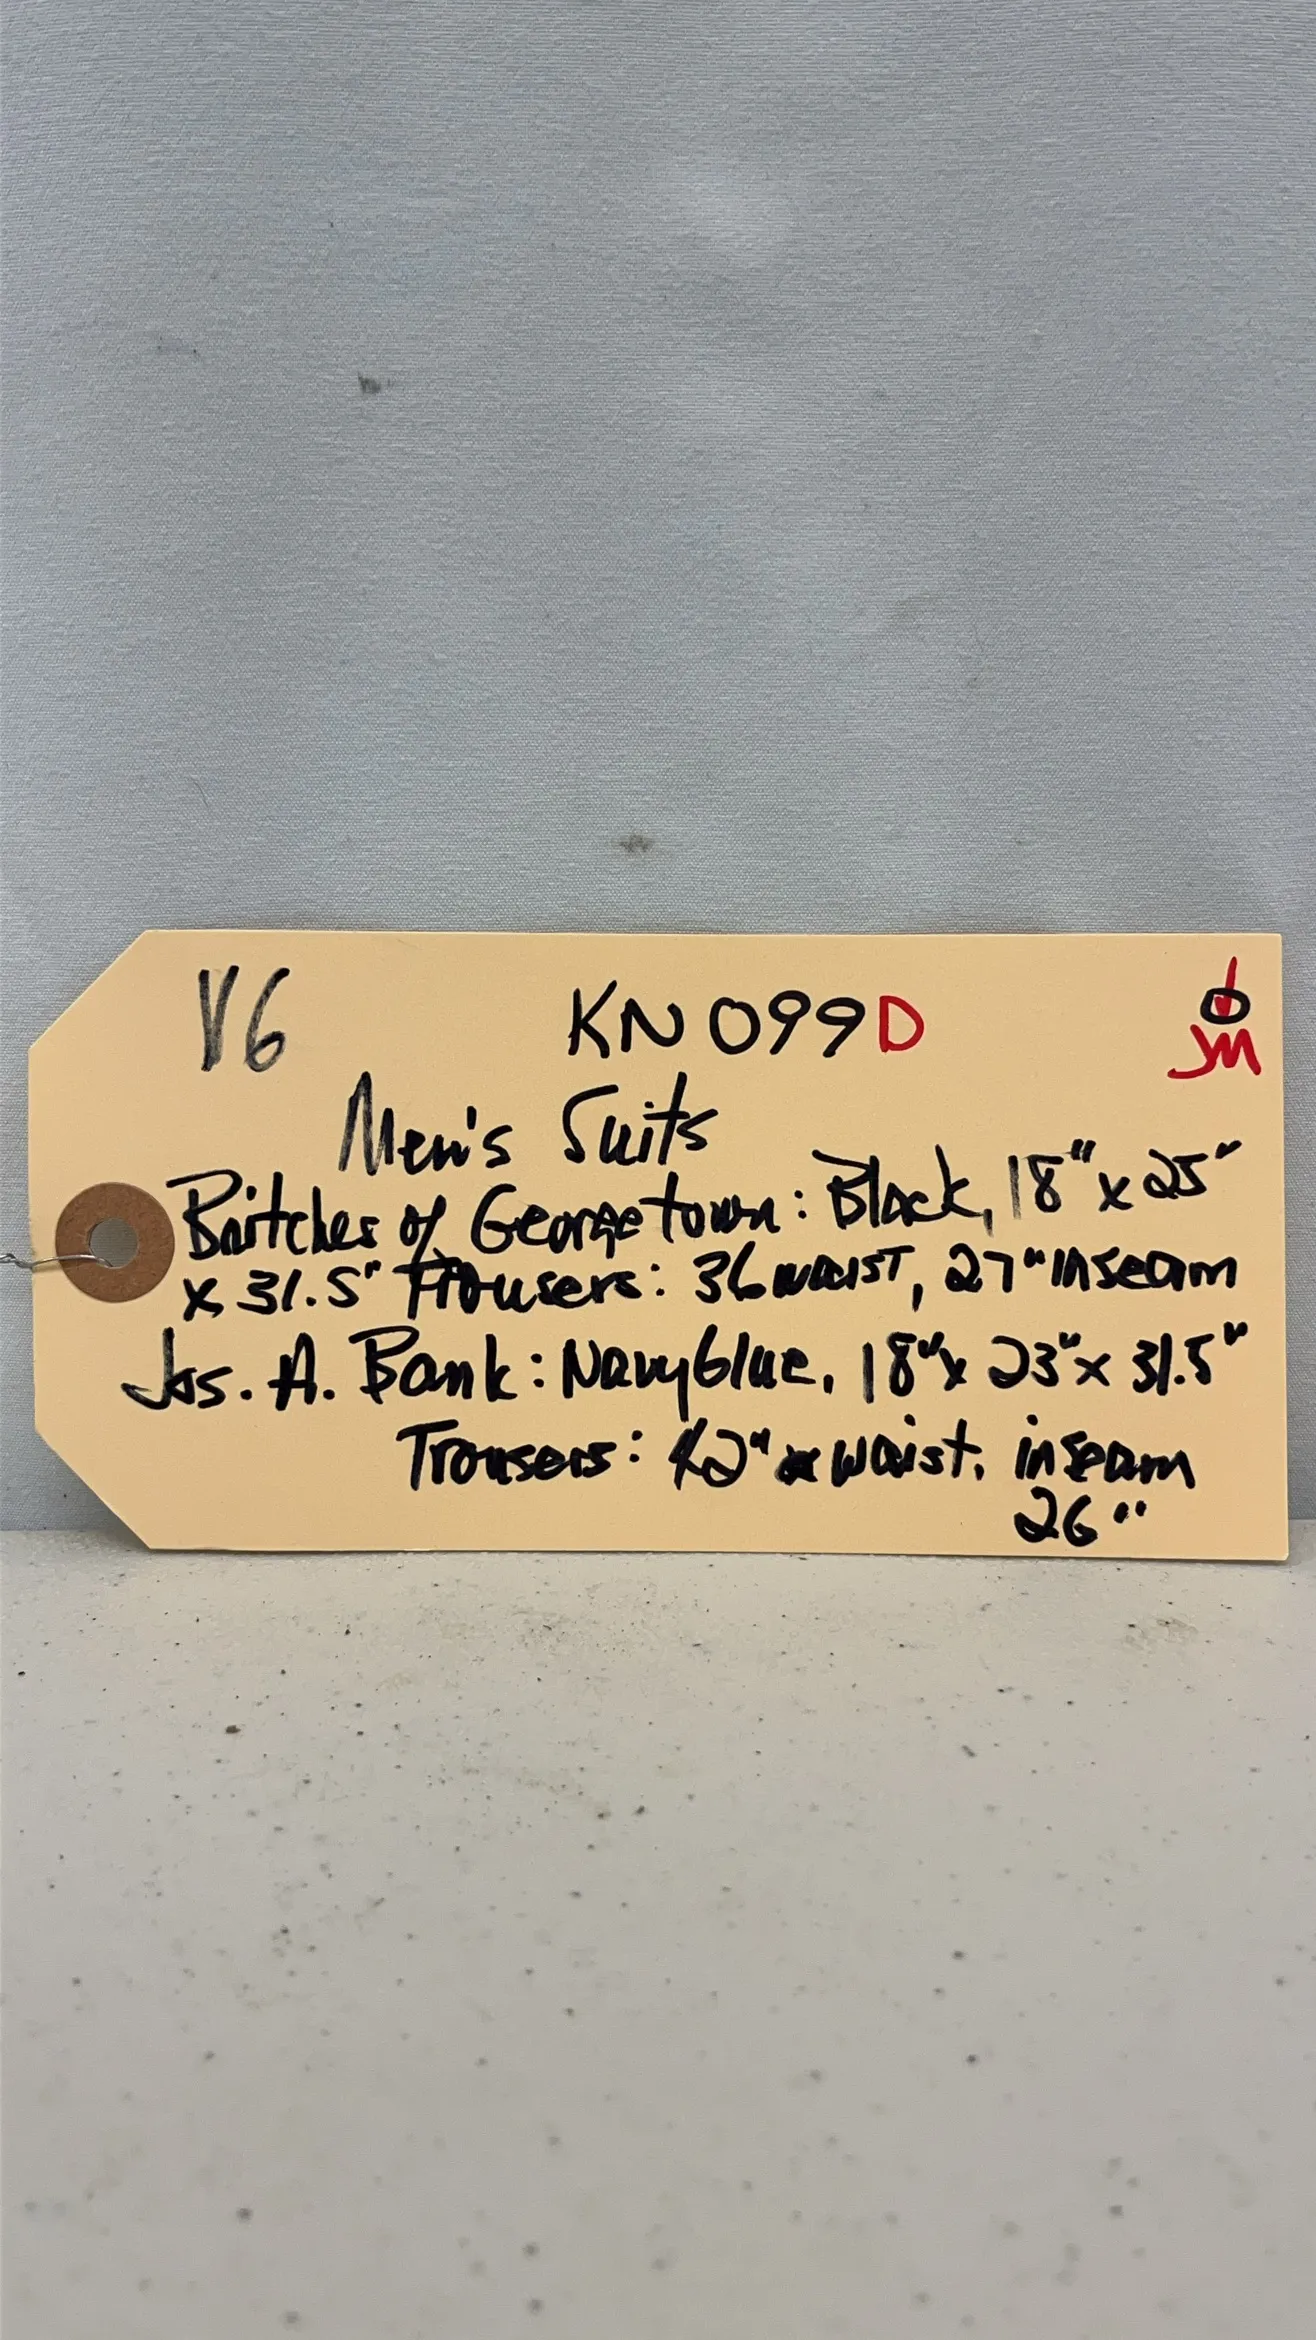 V6 KN099D
JM
Men's Suits
Britches of Georgetown: Black, 18" x 25"
x 31.5" Trousers: 36 waist, 27" inseam
Jos. A. Bank: Navy blue, 18" x 23" x 31.5"
Trousers: 42" waist, inseam
26"